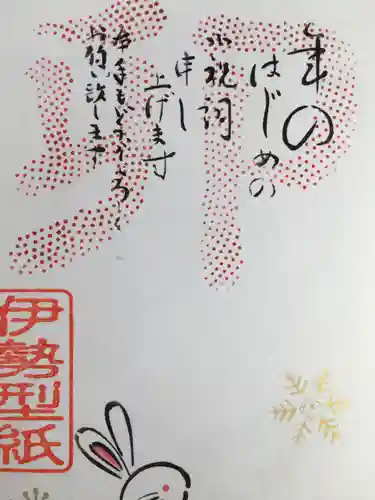 卯
年の
はじめの
御祝詞
申し
上げます
本年もどうぞよろしく
お願い致します
伊勢型紙